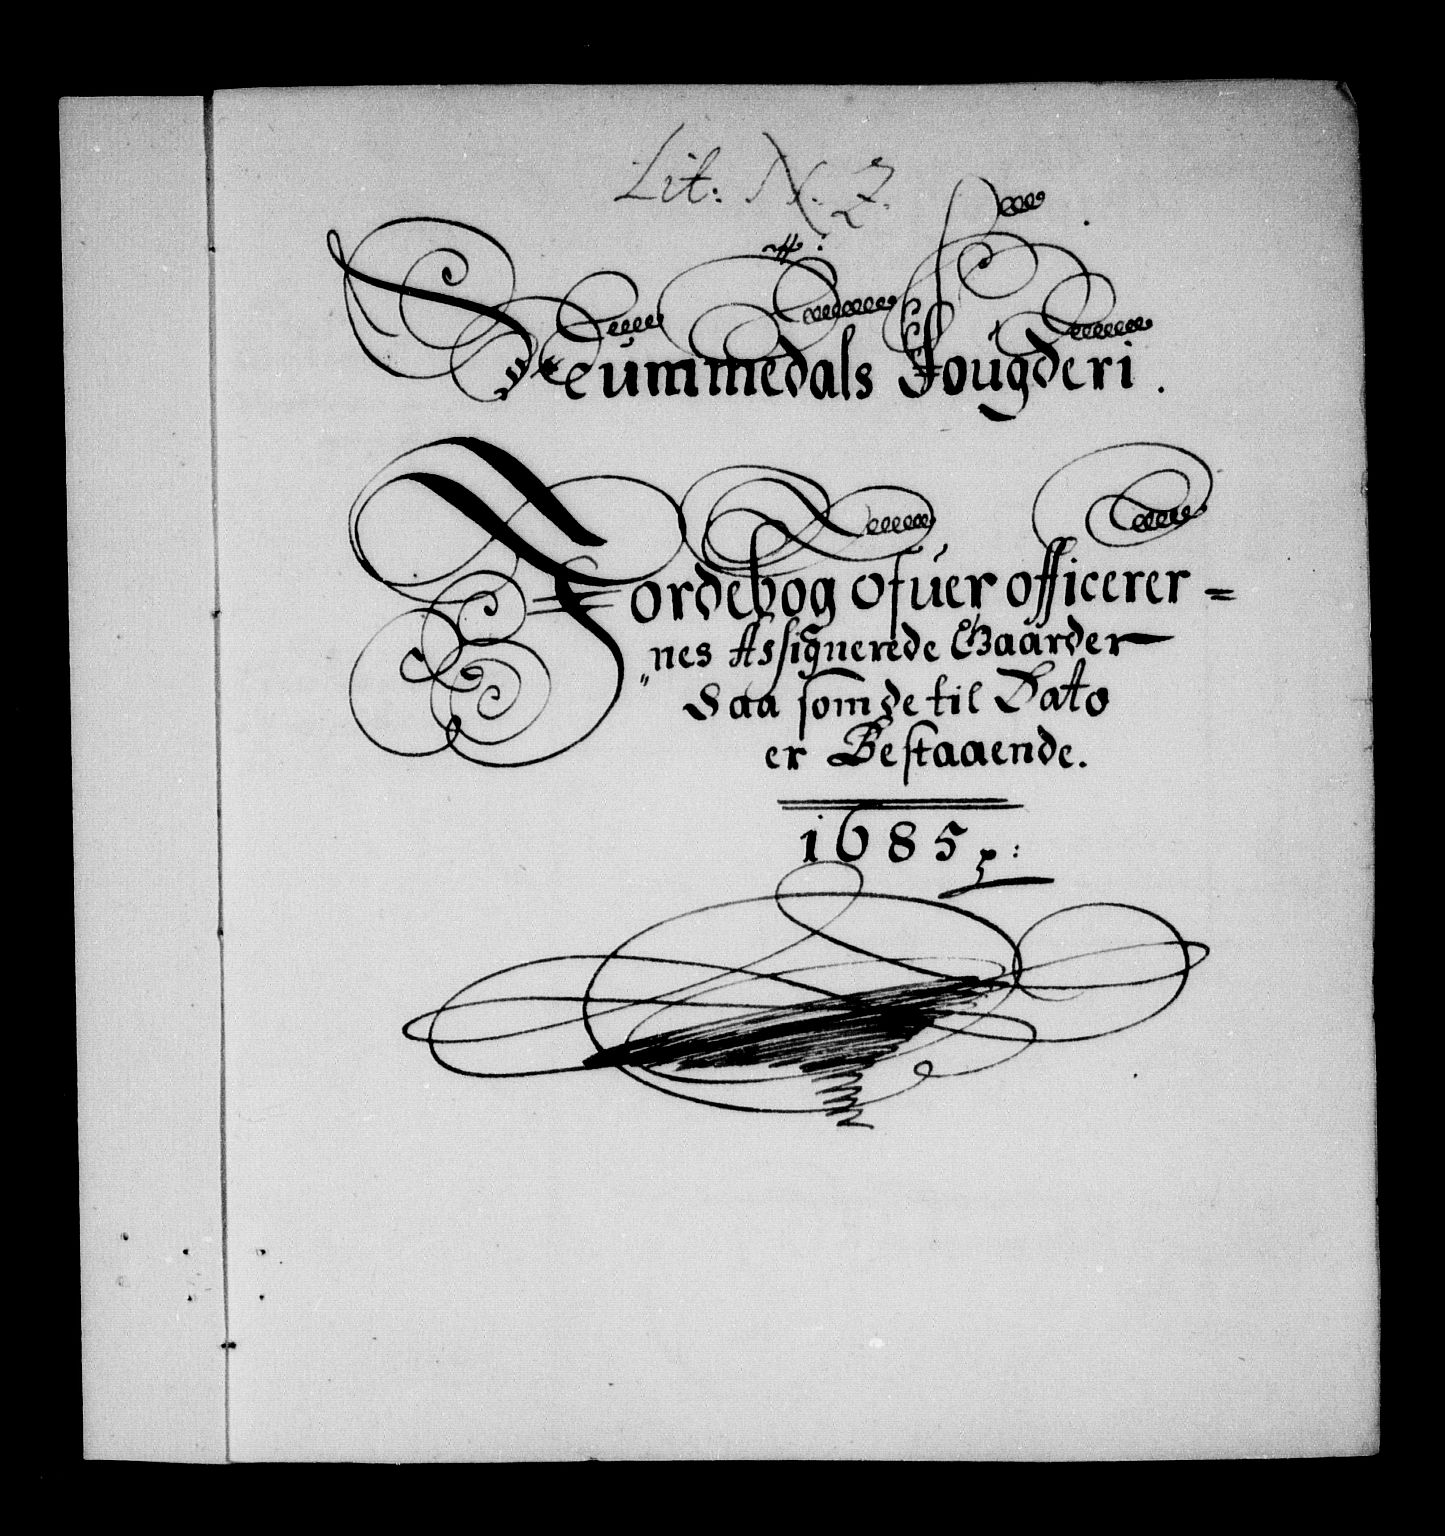 Lit: N. 2.
Neümmedals Foügderi.
Jordebog ofuer officerer=
nes Assignerede Gaarder
Saa som de til Dato
er Bestaaende.
1685